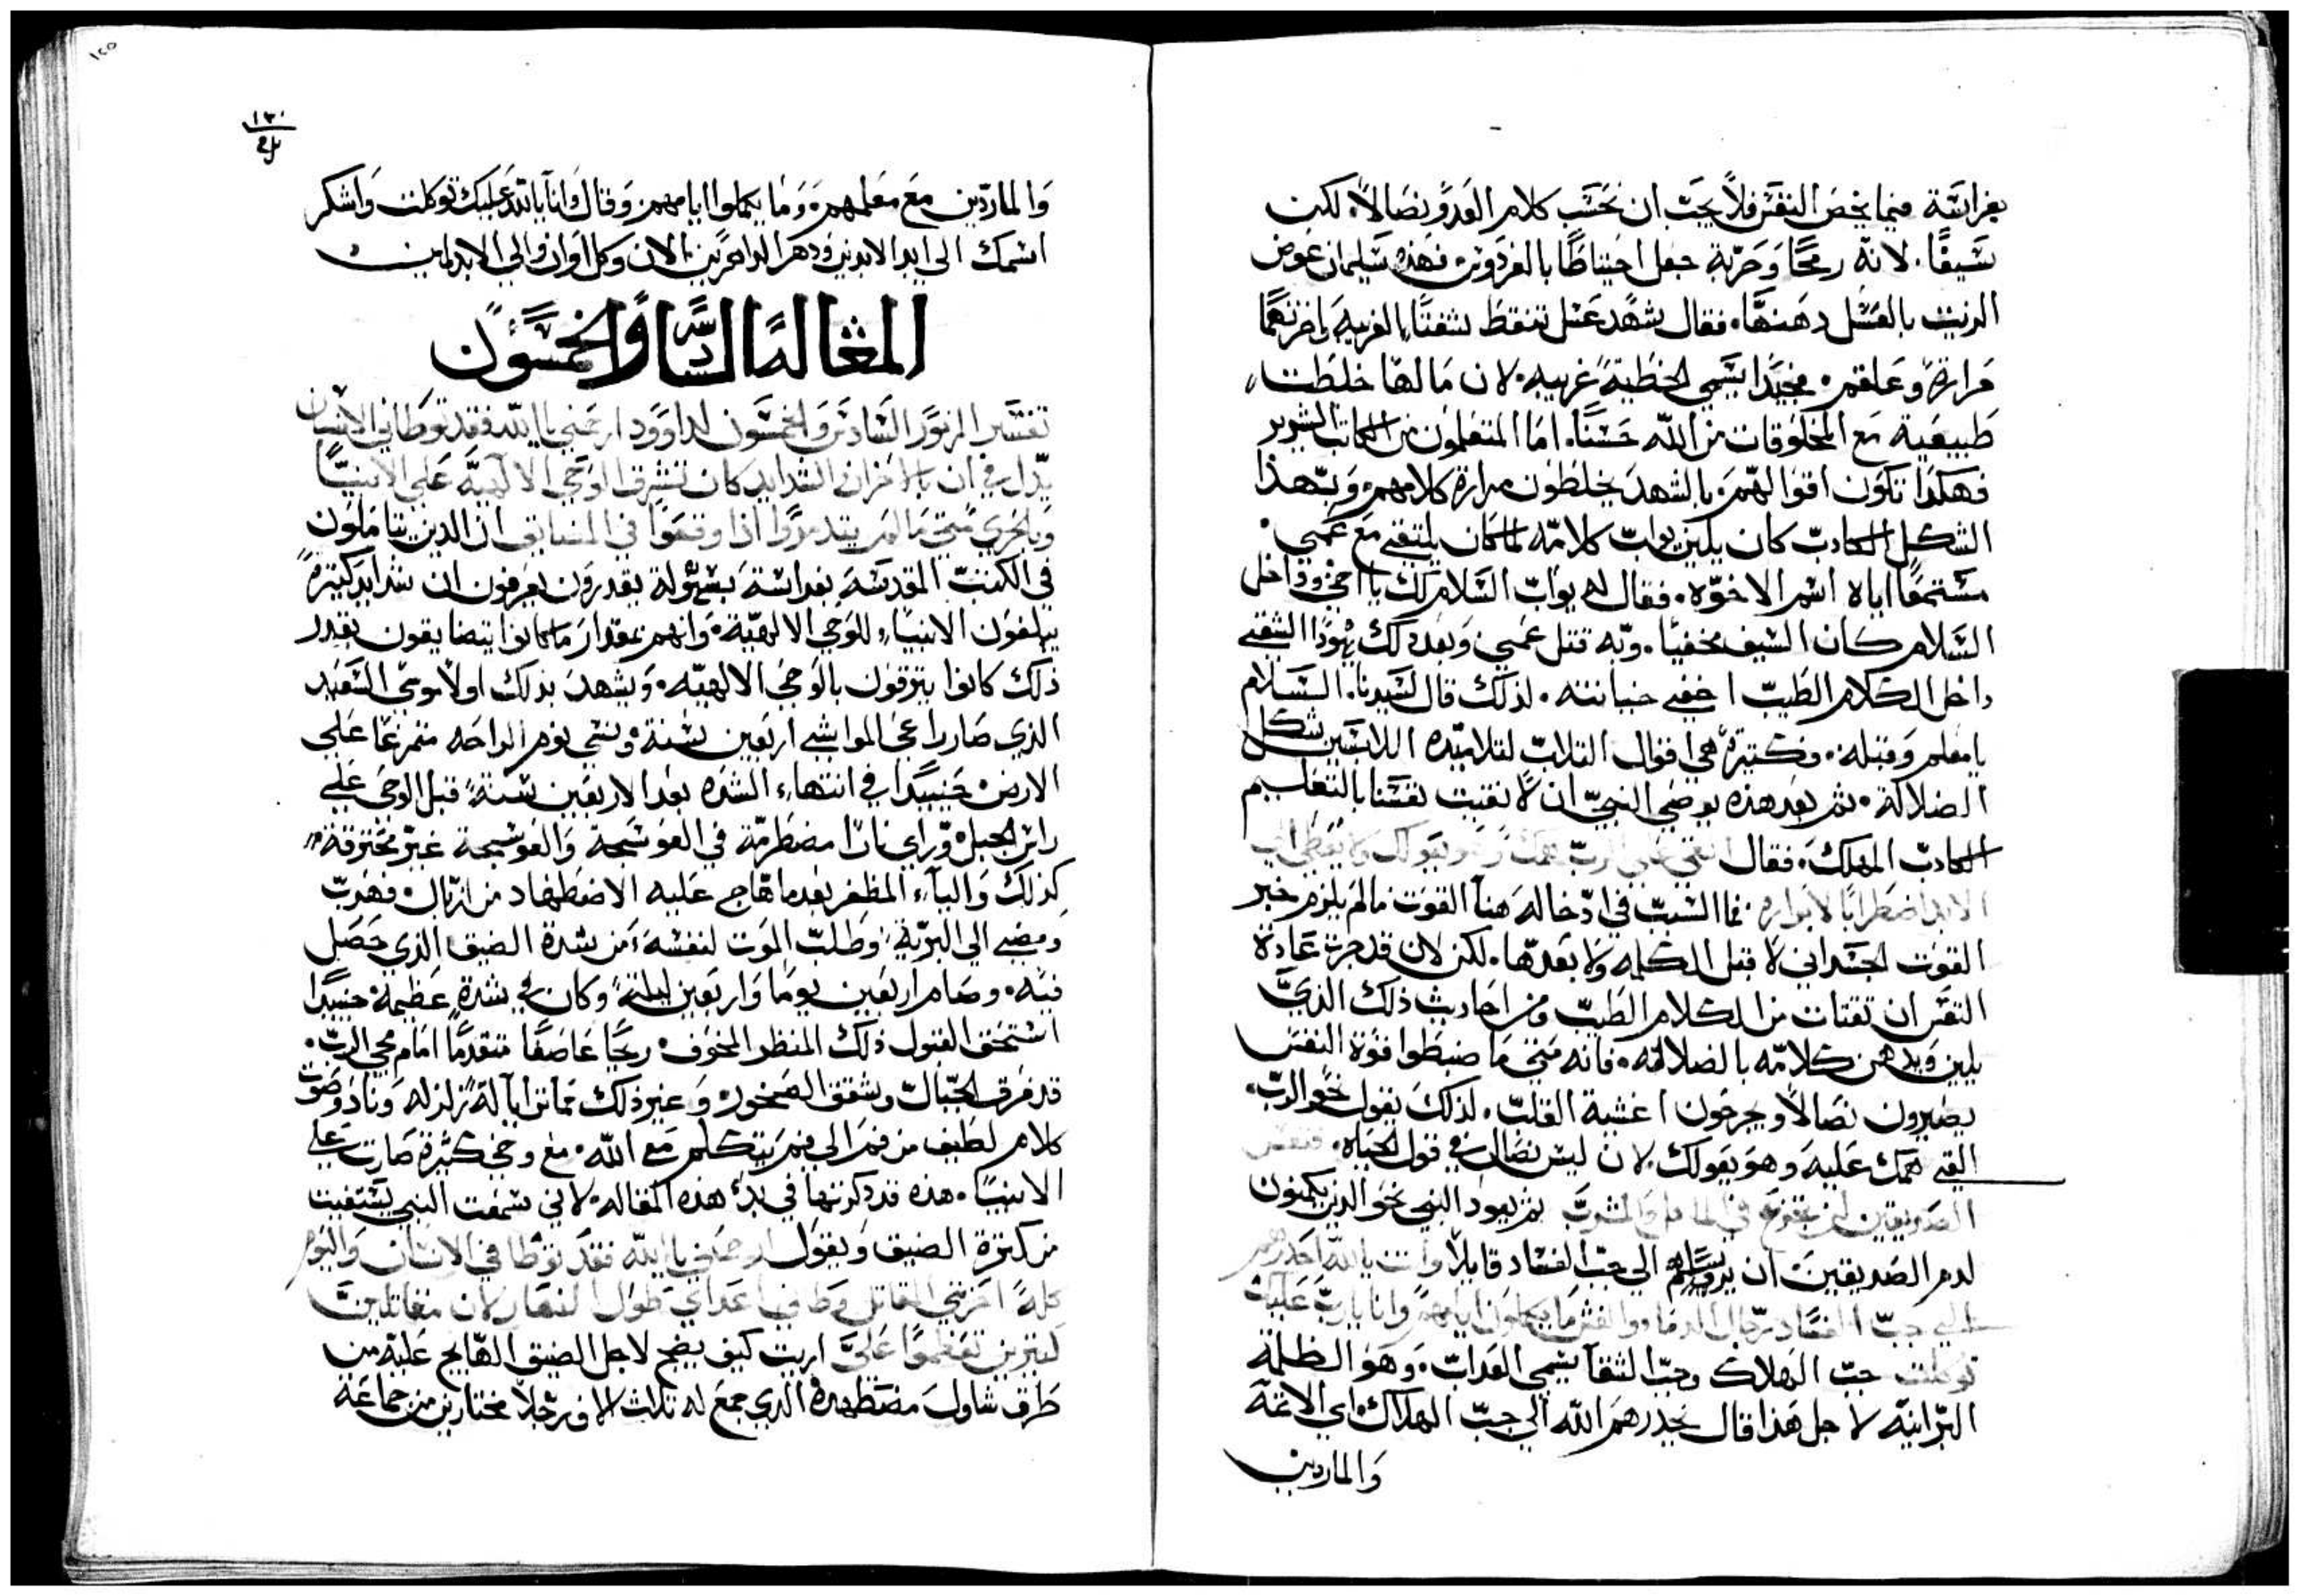 بفراسَة فيما يخص النفس فلا يجب ان نحسَب كلام العَدو نصَالاً، لكن
سَيفًا. لانه رمحًا وَحَربة جعل احتياطًا بالفردوس. فهذه سليمان عوض
الزيت بالعَسَل دهنها. فقال شهد عَسَل تنقط شفتا الغريبه واخرتهما
مَرارة وعَلقم. فجيدا يسَمي الخطية غريبه. لان مَا لها خلطت
طَبيعَية مع المخلوقات من الله حسَنًا. امَا المتعلمون من الكاتب الشرير
فهكذا تكون اقوالهم. بالشهد يخلطون مرارة كلامهم. وَبهذا
الشكل الكادب كان يلين يواب كلامه لما كان يلتقي مع عمسي.
مسَتمعًا اياه اسم الاخوّه. فقال له يواب السَلام لك يا اخي وداخل
السَلام كان السَيف مخفيًا. وبه قتل عمسي وَبعد دلك يهودا التقي
داخل الكلام الطيب اخفي خيانته. لذلك قال لسَيدنا. السَلام
يا معلم وَقبله. وكتيرة هي اقوال التلاب لتلاميده اللابسَين شكل
الضلالة. تم بعد هذه يوصي النبي ان لا نقيت نفسَنا بالتعليم
الكادب المهلك. فقال القي علي الرب همك وَهو يعَولك ولا يعطي الي
الابد اضطرابًا لابراره. فما السَبب في ادخاله هنا القوت ما لم يلزم خبر
القوت الجسَداني لا قبل الكلمه ولا بعدها. لكن لان قد جرت عَادة
النفس ان تقتات من الكلام الطيب ومن احاديث ذلك الذي
يلين ويدهن كلامه بالضلاله. فانه متي مَا ضبطوا قوة النفس
يصيرون نصَالاً ويجرحون اغشية القلب. لذلك يقول نحو الرب.
القي همك عَليه وَهو يعَولك. لان ليس نصَال في قول الحياه.
الصديقين تم يعود النبي نحو الذين يكمنون
لدم الصديقين ان يرسَلهم الي جب الفسَاد قايلاً وانت يا الله احدرهم
الي جب الفسَاد رجال الدماء والغش مَا يكملون ايامهم وانا يا رب عَليك
توكلت جب الهلاك وجب الشقا يسَمي العَداب. وَهو الظلمة
البرانية لاجل هذا قال يحدرهم الله الي جب الهلاك. اي الائمة
وَالماردين
١٣١
وَالماردين مَع مَعلمهم. وَمَا يكملوا ايامهم. وَقال وَانا يا الله عَليك توكلت وَاشكر
اسَمك الي ابد الابدين ودهر الداهرين الان وكل اوان والي الابد امين
المقالة السَادسَة والخمسَون
تفسَير المزمور السَادس وَالخمسَون لداوود ارحمني يا الله فقد توطاني الانسَان
ان بالاحزان الشدايد كان تشرق الوَحي الالهيَة عَلي الانبيا
وَبالحري متي مَا لم يتدمروا اذا وقعَوا في المضايق ان الدين يتاملون
في الكتب المقدسَة بفراسَة بسَهولة يقدرون يعرفون ان شدايد كتيرة
يبلغون الانبياء للوَحي الالهية. وَانهم بمقدار مَا كانوا يتضايقون بقدر
ذلك كانوا يترقون بالوَحي الالهيه. وَيشهد بدلك اولا موسَي السَعيد
الذي صَار راعي المواشي اربَعين سَنة. ونسَي يوم الراحه متمرغا علي
الارض. حينيدا في انتهاء الشده بعد الاربَعين سَنة، قبل الوحي علي
راس الجبل. وراي نارًا مضطَرمة في العوسَجة وَالعوسَجة غير محترقة.
كذلك وَالياء المظفر بعد ما هاج عَليه الاضطهاد من ازبال. فهرب
ومضي الي البرية. وَطلب الموت لنفسَه، من شدة الضيق الذي حَصَل
فيه. وصَام اربَعين يومًا وَاربعَين ليلة. وكان في شدة عَظيمة. حنيدا
اسَتحق القبول ذلك المنظر المخوف. ريحًا عَاصَفًا متقدمًا امَام مجي الرب.
قد فرق الجبال وشقق الصَخور. وغير ذلك زلزله ونار وَصَوت
كلام لطيف من فم الي فم يتكلم مَع الله. كثيرة صَارت علي
الانبيا. هذه قد دكرتها في بدء هذه المقاله. لاني سَمعت النبي يسَتغيت
من كترة الضيق وَيقول ارحمني يا الله فقد توطاني الانسَان وَاليوم
كلهُ احزنني المقاتل وَطاني اعَداي طول النهَار لان مقاتلين
كتيرين تعَظموا عَليَّ اريت كيف يضج لاجل الضيق الهايج عَليه من
طرف شاول مضَطهده. الدي جمع له تلاث الاف رجلاً مختارين من جماعَة